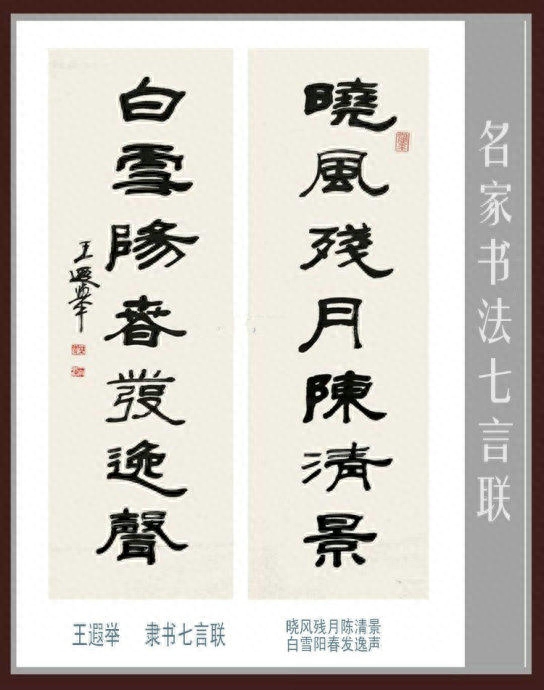 名家书法七言联
曉風殘月陳清景
白雪陽春發逸聲
王遐举
王遐举 隶书七言联
晓风残月陈清景
白雪阳春发逸声